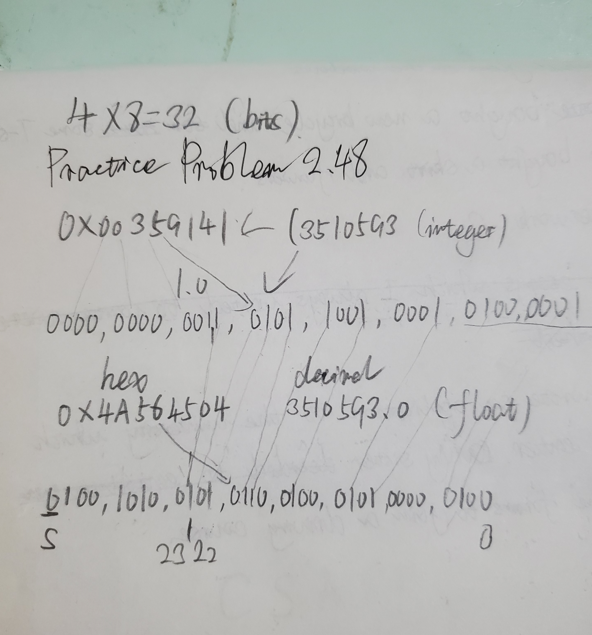 4×8=32 (bits).
Practice Problem 2.48
0X00359141 ← (3510593 (integer)
1.0
0000,0000,0011,0101,1001,0001,0100,0001
hex decimal
0X4A564504 3510593.0 (float)
0100,1010,0101,0110,0100,0101,0000,0100
S 23 22 0